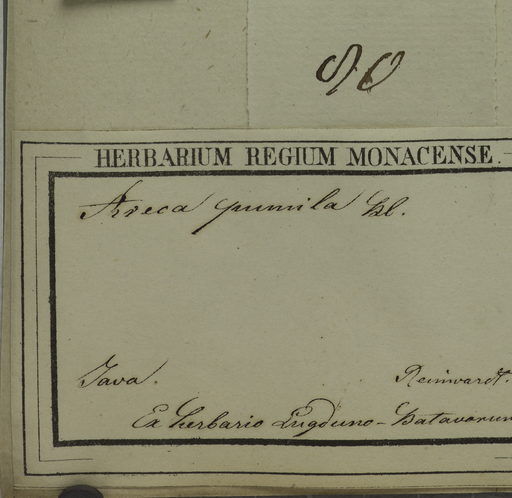 HERBARIUM REGIUM MONACENSE.
Areca pumila Bl.
Java.
Reinwardt.
Ex herbario Lugduno-Batavorum